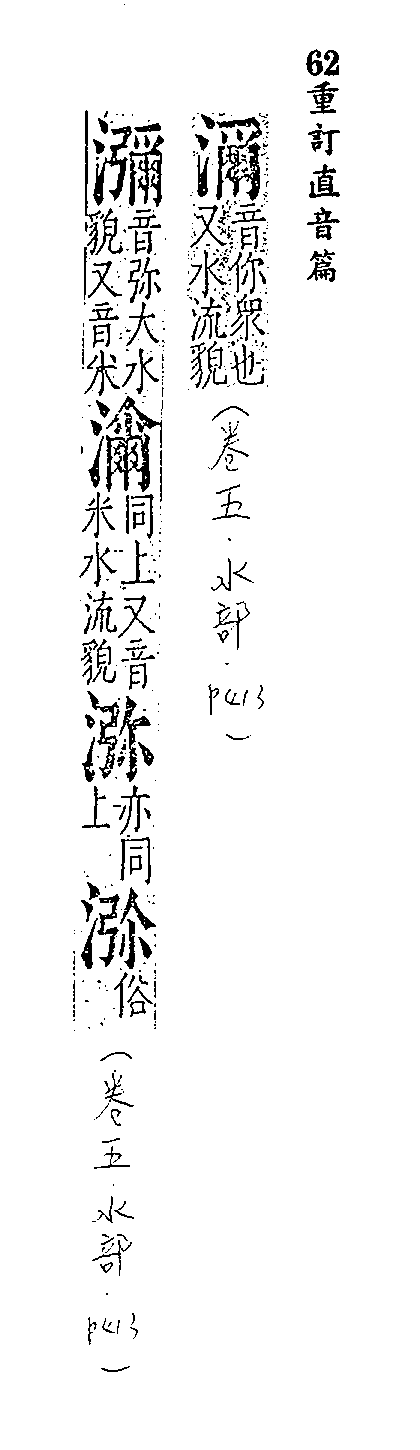 62重訂直音篇
濔音你衆也又水流貌（卷五．水部．p413）
瀰音弥大水貌又音米同上又音米水流貌㳽亦同上俗（卷五．水部．p413）